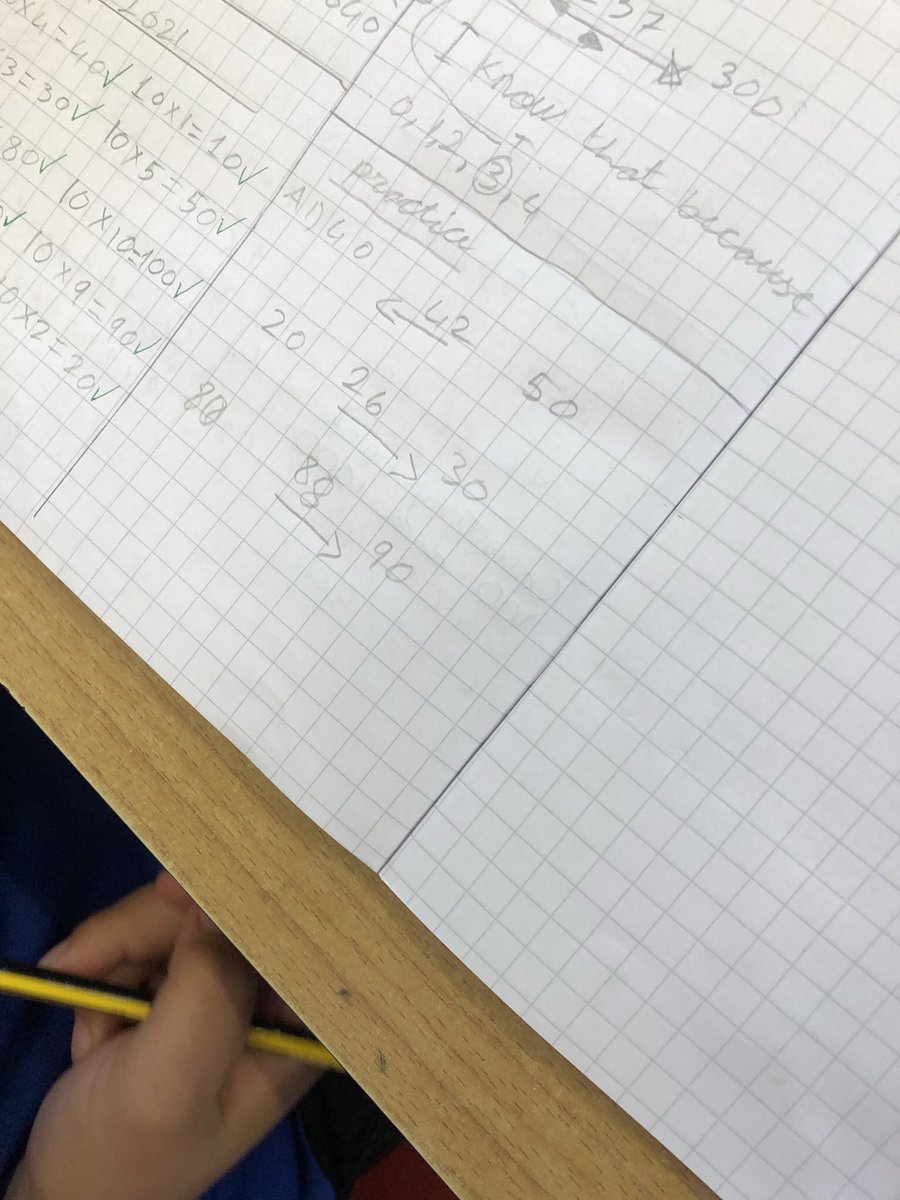 2021
×4=40✓
×3=30✓ 10×1=10✓
80✓ 10×5=50✓
10×10=100✓
10×9=90✓
×2=20✓
640
37
300
I know that because
0,1,2,3,4
practice
A1) 40 42 50
20 26 30
80 88 90